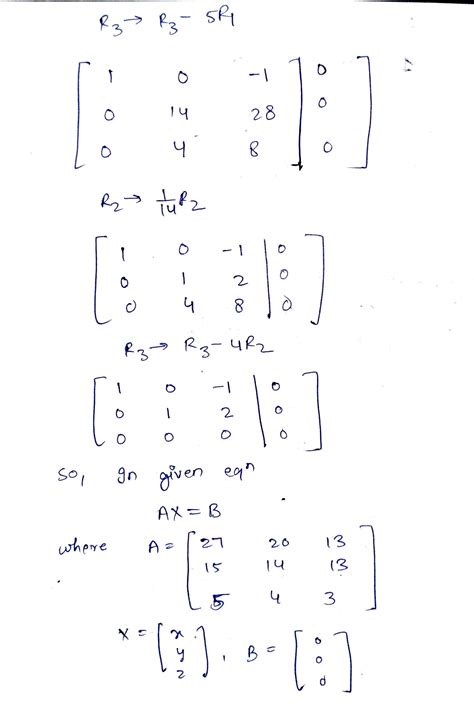 R3 → R3 - 5R1
[ 1 0 -1 | 0 ]
[ 0 14 28 | 0 ]
[ 0 4 8 | 0 ]
R2 → 1/14 R2
[ 1 0 -1 | 0 ]
[ 0 1 2 | 0 ]
[ 0 4 8 | 0 ]
R3 → R3 - 4R2
[ 1 0 -1 | 0 ]
[ 0 1 2 | 0 ]
[ 0 0 0 | 0 ]
So, In given eqn
AX = B
where A = [ 27 20 13 ]
[ 15 14 13 ]
[ 5 4 3 ]
X = [ x y z ], B = [ 0 0 0 ]